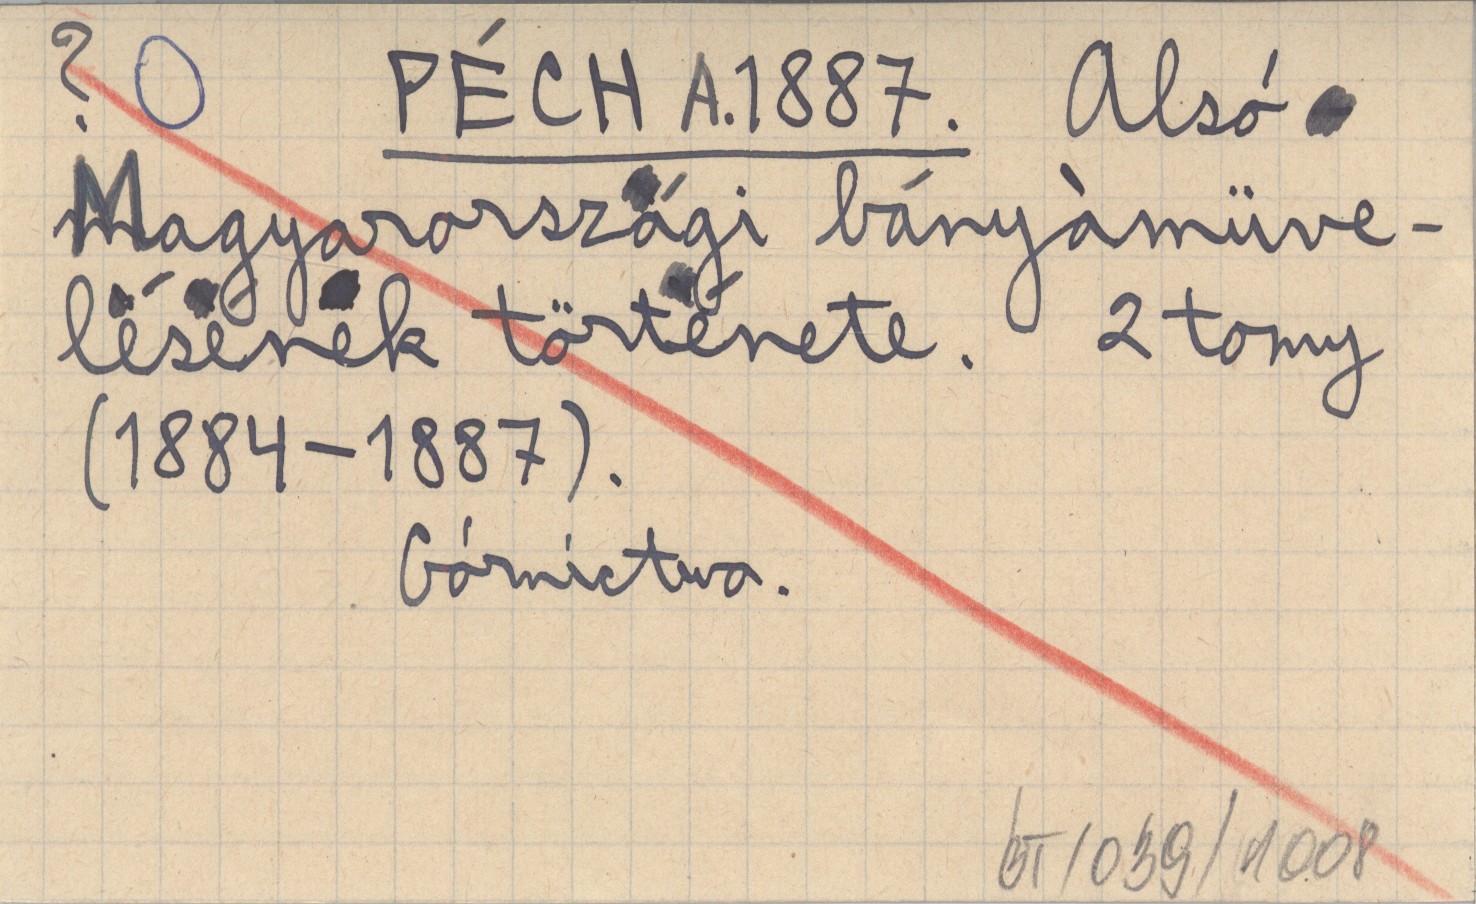 ? O PÉCH A. 1887. Alsó
Magyarországi bányàmüve-
lésének története. 2 tomy
(1884-1887).
Górnictwo.
BT/039/1008